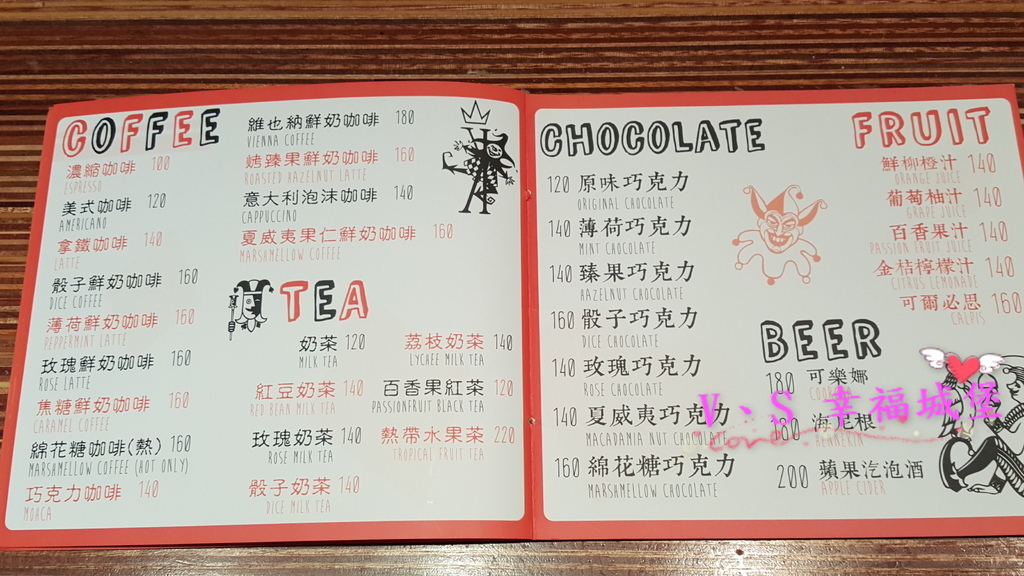 COFFEE
濃縮咖啡 100
ESPRESSO
美式咖啡 120
AMERICANO
拿鐵咖啡 140
LATTE
骰子鮮奶咖啡 160
DICE COFFEE
薄荷鮮奶咖啡 160
PEPPERMINT LATTE
玫瑰鮮奶咖啡 160
ROSE LATTE
焦糖鮮奶咖啡 160
CARAMEL COFFEE
綿花糖咖啡(熱) 160
MARSHMELLOW COFFEE (HOT ONLY)
巧克力咖啡 140
MOHCA
維也納鮮奶咖啡 180
VIENNA COFFEE
烤臻果鮮奶咖啡 160
ROASTED HAZELNUT LATTE
意大利泡沫咖啡 140
CAPPUCCINO
夏威夷果仁鮮奶咖啡 160
MARSHMELLOW COFFEE
TEA
奶茶 120
MILK TEA
紅豆奶茶 140
RED BEAN MILK TEA
玫瑰奶茶 140
ROSE MILK TEA
骰子奶茶 140
DICE MILK TEA
荔枝奶茶 140
LYCHEE MILK TEA
百香果紅茶 120
PASSIONFRUIT BLACK TEA
熱帶水果茶 220
TROPICAL FRUIT TEA
CHOCOLATE
120 原味巧克力
ORIGINAL CHOCOLATE
140 薄荷巧克力
MINT CHOCOLATE
140 臻果巧克力
HAZELNUT CHOCOLATE
160 骰子巧克力
DICE CHOCOLATE
140 玫瑰巧克力
ROSE CHOCOLATE
140 夏威夷巧克力
MACADAMIA NUT CHOCOLATE
160 綿花糖巧克力
MARSHMELLOW CHOCOLATE
FRUIT
鮮柳橙汁 140
ORANGE JUICE
葡萄柚汁 140
GRAPE JUICE
百香果汁 140
PASSION FRUIT JUICE
金桔檸檬汁 140
CITRUS LEMONADE
可爾必思 160
CALPIS
BEER
180 可樂娜
海尼根
200 蘋果汽泡酒
APPLE CIDER
V、S 幸福城堡